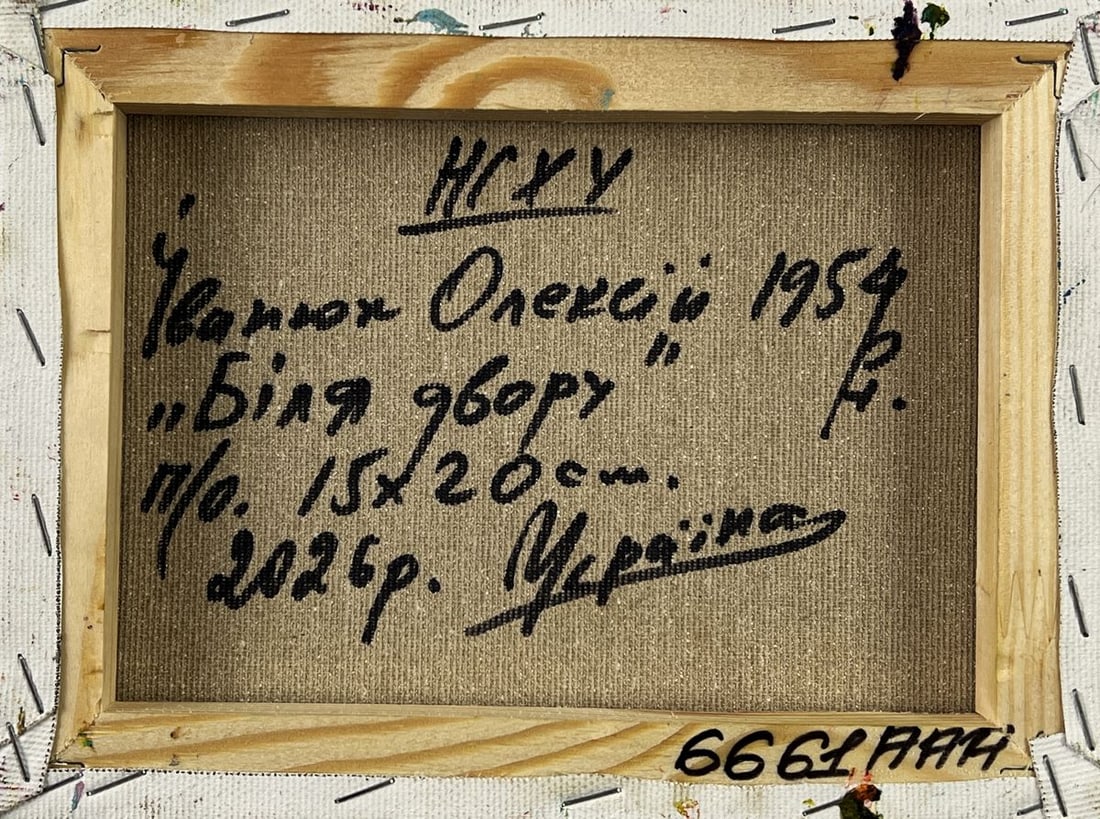 НСХУ
Іванюк Олексій 1954
р
н.
„Біля двору"
п/о. 15х20 cm.
2026р. Україна
6661ААН